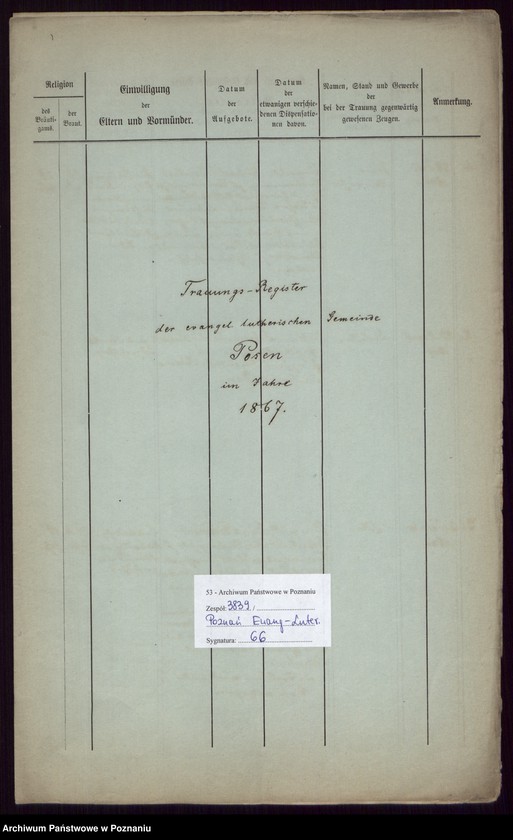 Religion
des
Bräuti-
gams.
der
Braut.
Einwilligung
der
Eltern und Vormünder.
Datum
der
Aufgebote.
Datum
der
etwanigen verschie-
denen Dispensatio-
nen davon.
Namen, Stand und Gewerbe
der
bei der Trauung gegenwärtig
gewesenen Zeugen.
Anmerkung.
Trauungs-Register
der evangel. lutherischen Gemeinde
Posen
im Jahre
1867.
53 - Archiwum Państwowe w Poznaniu
Zespół: 3839 /
Poznań Ewang-Luter.
Sygnatura: 66
Archiwum Państwowe w Poznaniu